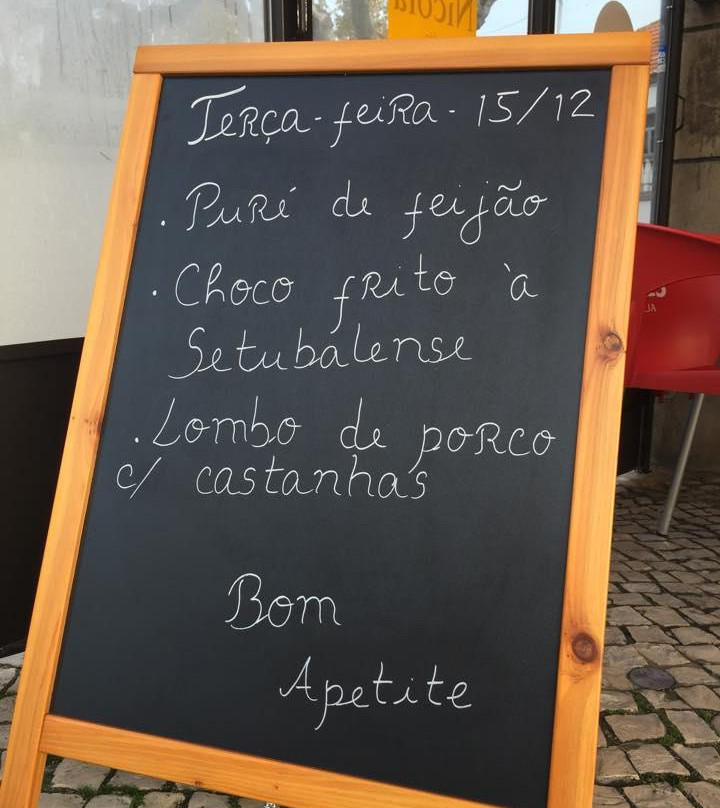 Nicola
Terça-feira - 15/12
. Puré de feijão
. Choco frito à
Setubalense
. Lombo de porco
c/ castanhas
Bom
Apetite